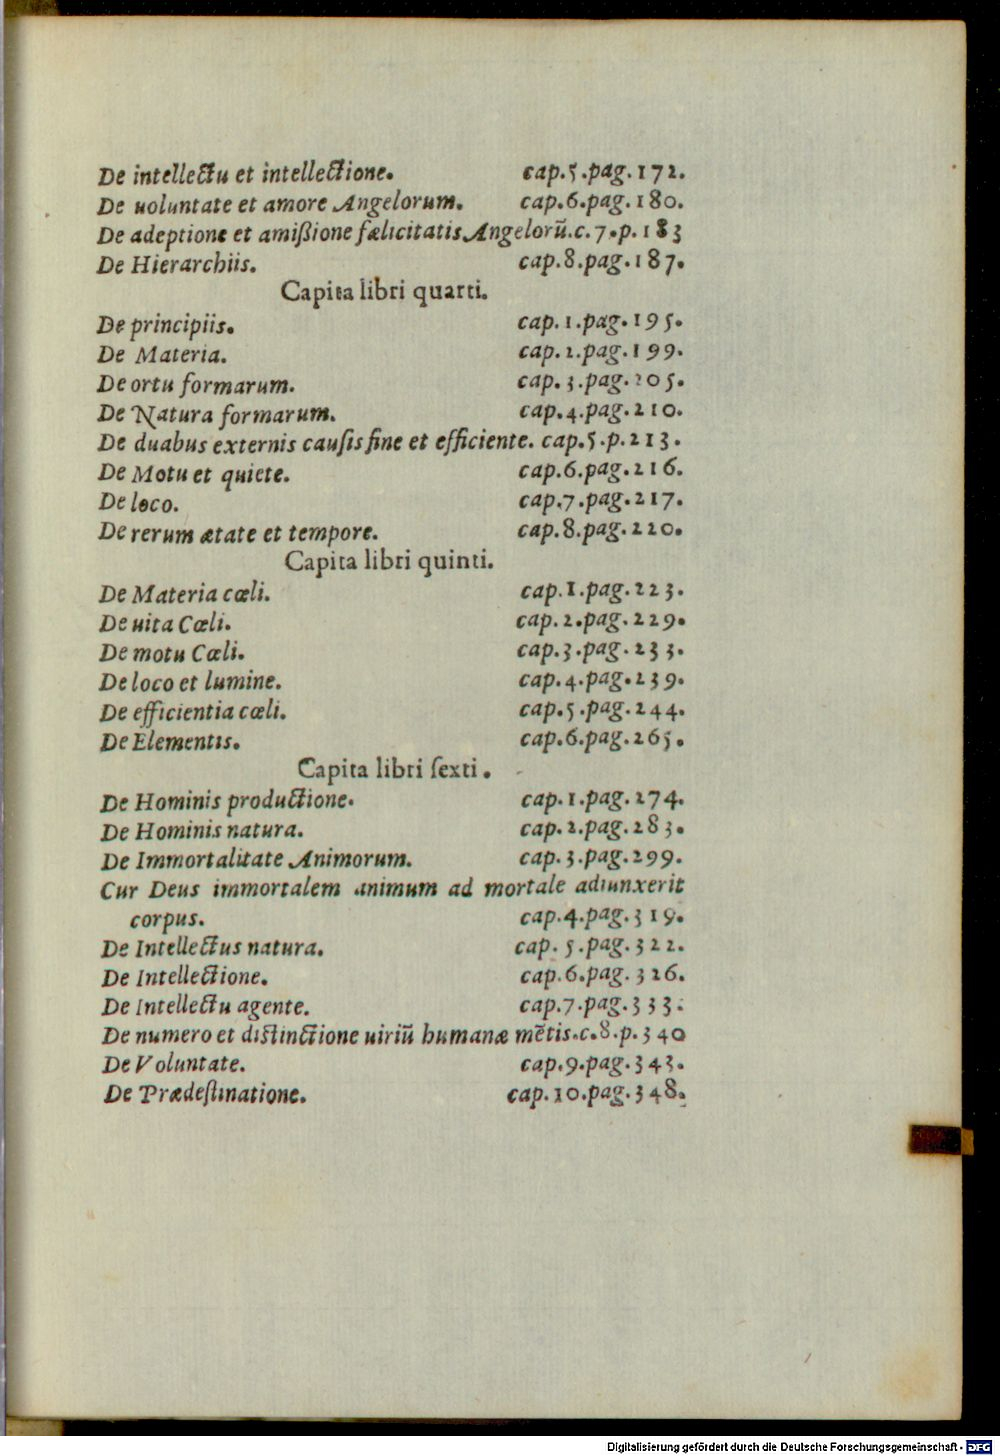 De intellectu et intellectione. cap.5.pag.172.
De uoluntate et amore Angelorum. cap.6.pag.180.
De adeptione et amißione fælicitatis Angelorū.c.7.p.183
De Hierarchiis. cap.8.pag.187.
Capita libri quarti.
De principiis. cap.1.pag.195.
De Materia. cap.2.pag.199.
De ortu formarum. cap.3.pag.205.
De Natura formarum. cap.4.pag.210.
De duabus externis cauſis fine et efficiente. cap.5.p.213.
De Motu et quiete. cap.6.pag.216.
De loco. cap.7.pag.217.
De rerum ætate et tempore. cap.8.pag.220.
Capita libri quinti.
De Materia cœli. cap.1.pag.223.
De uita Cœli. cap.2.pag.229.
De motu Cœli. cap.3.pag.233.
De loco et lumine. cap.4.pag.239.
De efficientia cœli. cap.5.pag.244.
De Elementis. cap.6.pag.265.
Capita libri ſexti.
De Hominis productione. cap.1.pag.274.
De Hominis natura. cap.2.pag.283.
De Immortalitate Animorum. cap.3.pag.299.
Cur Deus immortalem animum ad mortale adiunxerit
corpus. cap.4.pag.319.
De Intellectus natura. cap.5.pag.322.
De Intellectione. cap.6.pag.326.
De Intellectu agente. cap.7.pag.333.
De numero et distinctione uiriū humanæ mētis.c.8.p.340
De Voluntate. cap.9.pag.343.
De Prædeſtinatione. cap.10.pag.348.
Digitalisierung gefördert durch die Deutsche Forschungsgemeinschaft - DFG